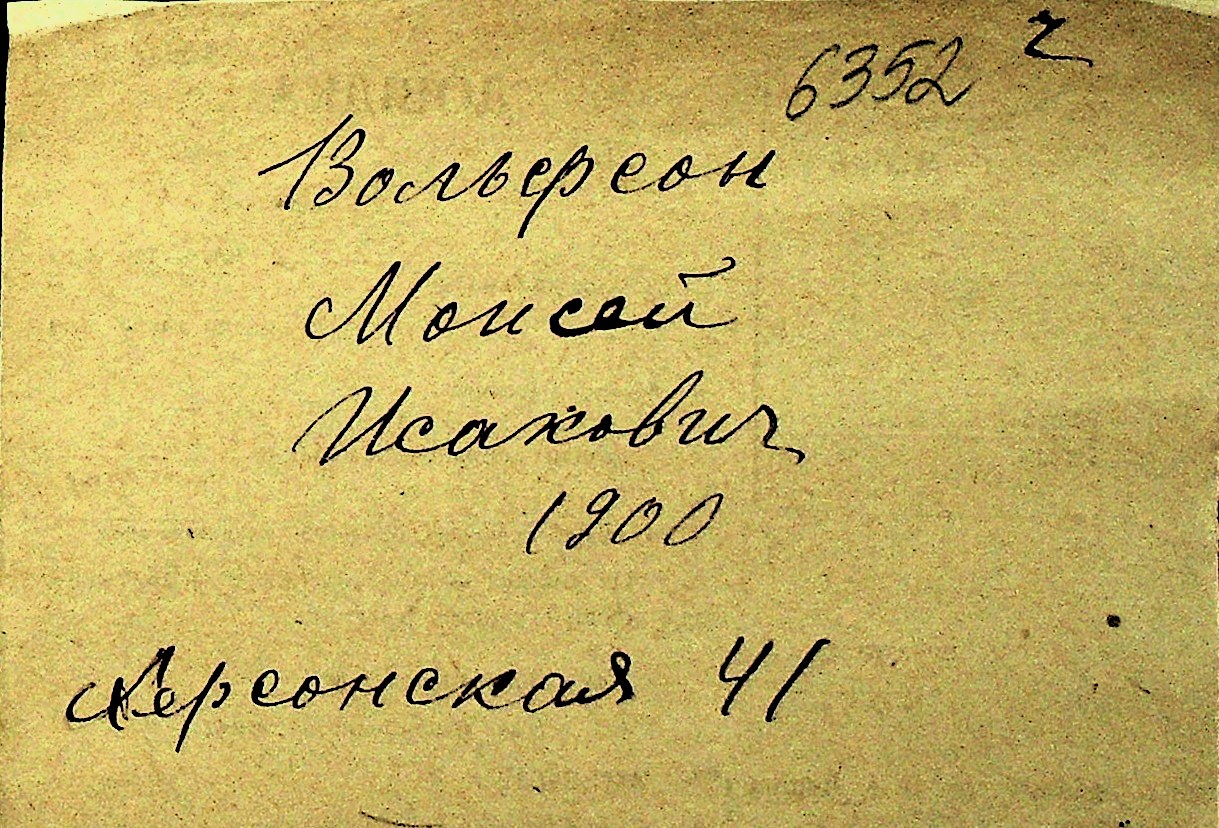 6352 ч
Вольфсон
Моисей
Исакович
1900
Херсонская 41